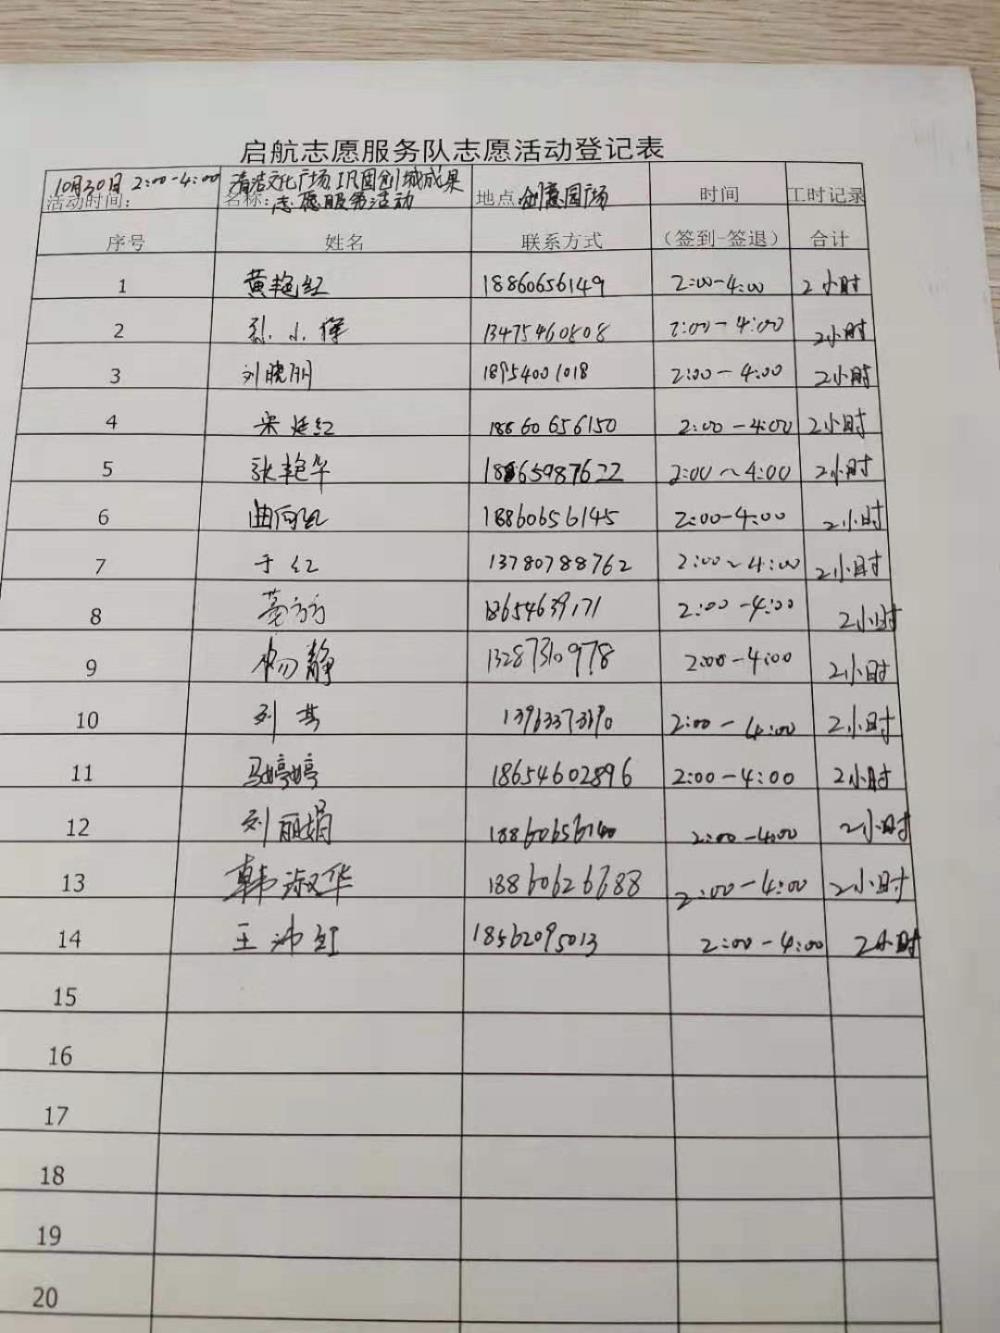 启航志愿服务队志愿活动登记表
10月30日 2:00-4:00 清洁文化广场、巩固创城成果
活动时间: 名称:志愿服务活动 地点 创意园广场 时间 工时记录
序号 姓名 联系方式 (签到-签退) 合计
1 黄艳红 18860656149 2:00-4:00 2小时
2 小 13475460808 2:00-4:00 2小时
3 刘晓丽 18954001018 2:00-4:00 2小时
4 宋廷红 18860656150 2:00-4:00 2小时
5 张艳华 18865987622 2:00~4:00 2小时
6 曲 18860656145 2:00-4:00 2小时
7 于红 13780788762 2:00~4:00 2小时
8 方方 18654639171 2:00-4:00 2小时
9 杨静 13287310978 2:00-4:00 2小时
10 刘 2:00-4:00 2小时
11 马婷婷 18654602896 2:00-4:00 2小时
12 刘丽娟 18860656140 2:00-4:00 2小时
13 韩淑华 18860626688 2:00-4:00 2小时
14 王沛红 18562095013 2:00-4:00 2小时
15
16
17
18
19
20